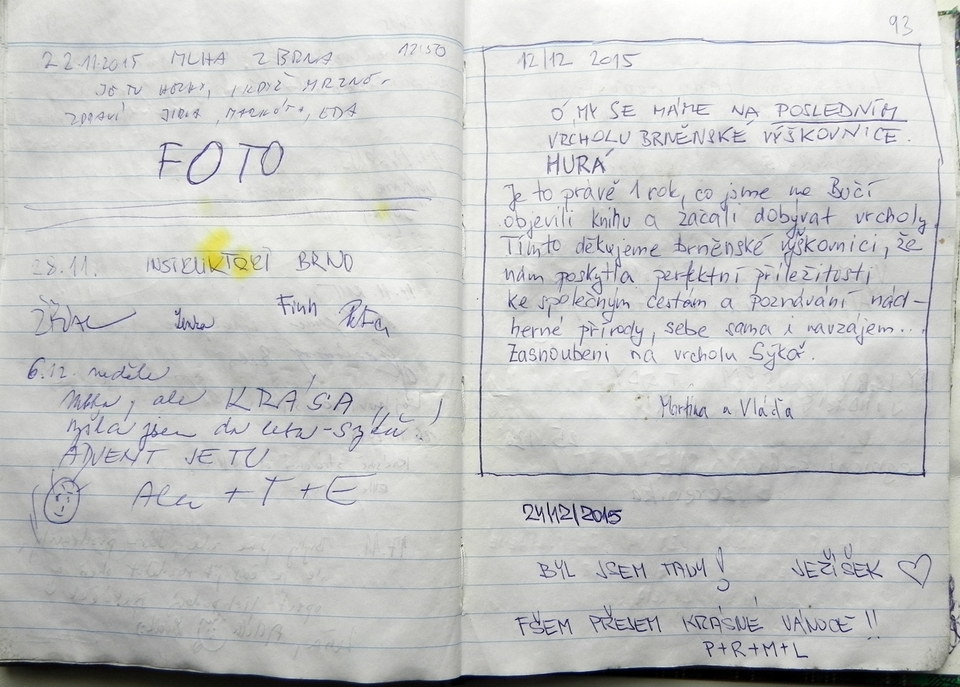 22.11.2015 MLHA Z BRNA 12:50
JE TU HEZKY, I KDYŽ MRZNE.
ZDRAVÍ JIRKA, MARKÉTA, EDA
FOTO
28.11. INSTRUKTOŘI BRNO
Lenka Finn Petra
6.12. neděle
Mlha, ale KRÁSA
ADVENT JE TU
+ T + E
93
12/12 2015
Ó, MY SE MÁME NA POSLEDNÍM
VRCHOLU BRNĚNSKÉ VÝŠKOVNICE.
HURÁ
Je to právě 1 rok, co jsme na Bučí
objevili knihu a začali dobývat vrcholy
Tímto děkujeme brněnské výškovnici, že
nám poskytla perfektní příležitosti
ke společným cestám a poznávání nád-
herné přírody, sebe sama i navzájem...
Zasnoubeni na vrcholu Sýkoř.
Martina a Vláďa
24/12/2015
BYL JSEM TADY! JEŽÍŠEK ♡
FŠEM PŘEJEM KRÁSNÉ VÁNOCE!!
P+R+M+L